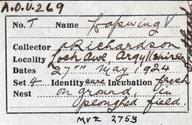 A.O.U. 269
No. T Name Lapwing V
Collector Richardson
Locality Loch Awe, Argyllshire
Dates 27th May 1924
Set 4 Identity sure Incubation fresh
Nest on ground, in
ploughed field.
MVZ 2753